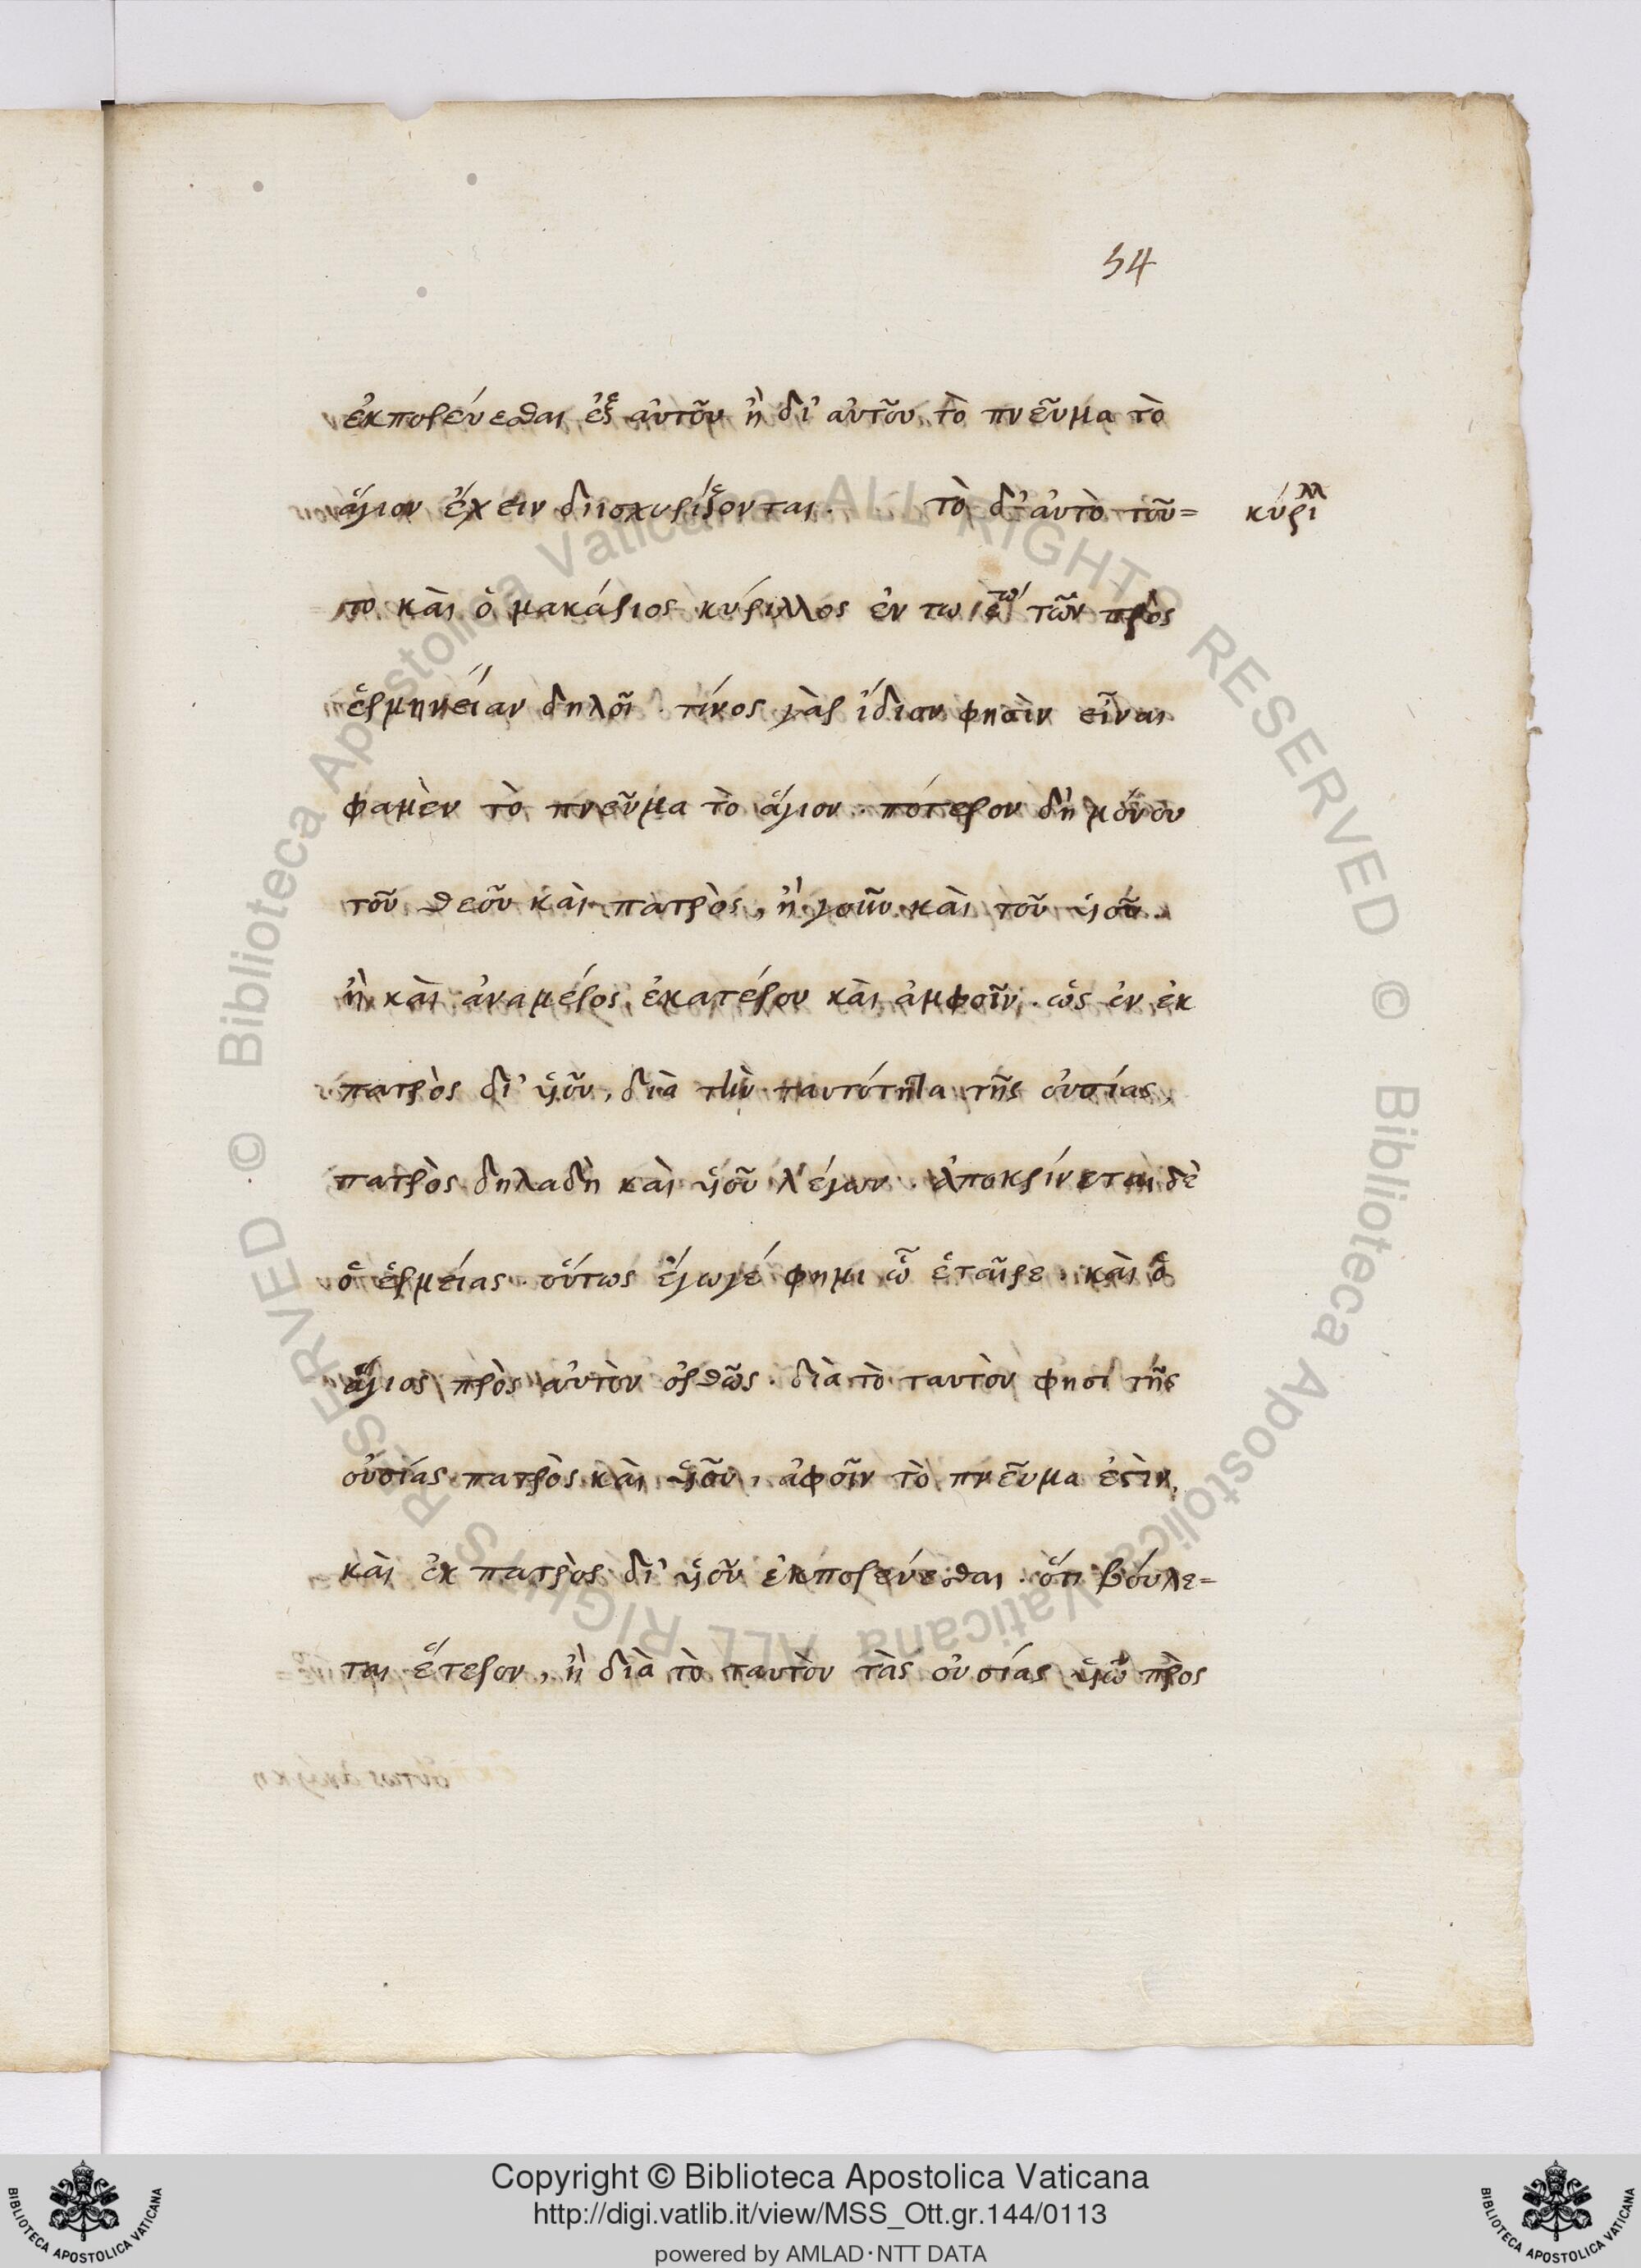 54
ἐκπορεύεσθαι ἐξ αὐτοῦ ἢ δι' αὐτοῦ τὸ πνεῦμα τὸ
ἅγιον ἔχειν διισχυρίζονται. τὸ δ' αὐτὸ τοῦ=
κύριλλ
το καὶ ὁ μακάριος κύριλλος ἐν τω τῶν πρὸς
ἑρμηνείαν δηλοῖ. τίνος γὰρ ἴδιον φησὶν εἶναι
φαμὲν τὸ πνεῦμα τὸ ἅγιον. πότερον δὴ μόνου
τοῦ θεοῦ καὶ πατρὸς, ἤγουν καὶ τοῦ υἱοῦ.
ἢ καὶ ἀναμέρος ἑκατέρου καὶ ἀμφοῖν. ὡς ἐν ἐκ
πατρὸς δι' υἱοῦ, διὰ τὴν ταυτότητα τῆς οὐσίας,
πατρὸς δηλαδὴ καὶ υἱοῦ λέγων. ἀποκρίνεται δὲ
ὁ ἑρμείας. οὕτως ἔγωγέ φημι ὦ ἑταῖρε. καὶ ὁ
ἅγιος πρὸς αὐτὸν ὀρθῶς. διὰ τὸ ταυτὸν φησὶ τῆς
οὐσίας πατρὸς καὶ υἱοῦ, ἀφοῖν τὸ πνεῦμα ἐστὶν,
καὶ ἐκ πατρὸς δι' υἱοῦ ἐκπορεύεσθαι. ὅτι βούλε=
ται ἕτερον, ἢ διὰ τὸ ταυτὸν τὰς οὐσίας υἱοῦ πρὸς
© Biblioteca Apostolica Vaticana ALL RIGHTS RESERVED
© Biblioteca Apostolica Vaticana ALL RIGHTS RESERVED
Copyright © Biblioteca Apostolica Vaticana
http://digi.vatlib.it/view/MSS_Ott.gr.144/0113
powered by AMLAD·NTT DATA
BIBLIOTECA APOSTOLICA VATICANA
BIBLIOTECA APOSTOLICA VATICANA